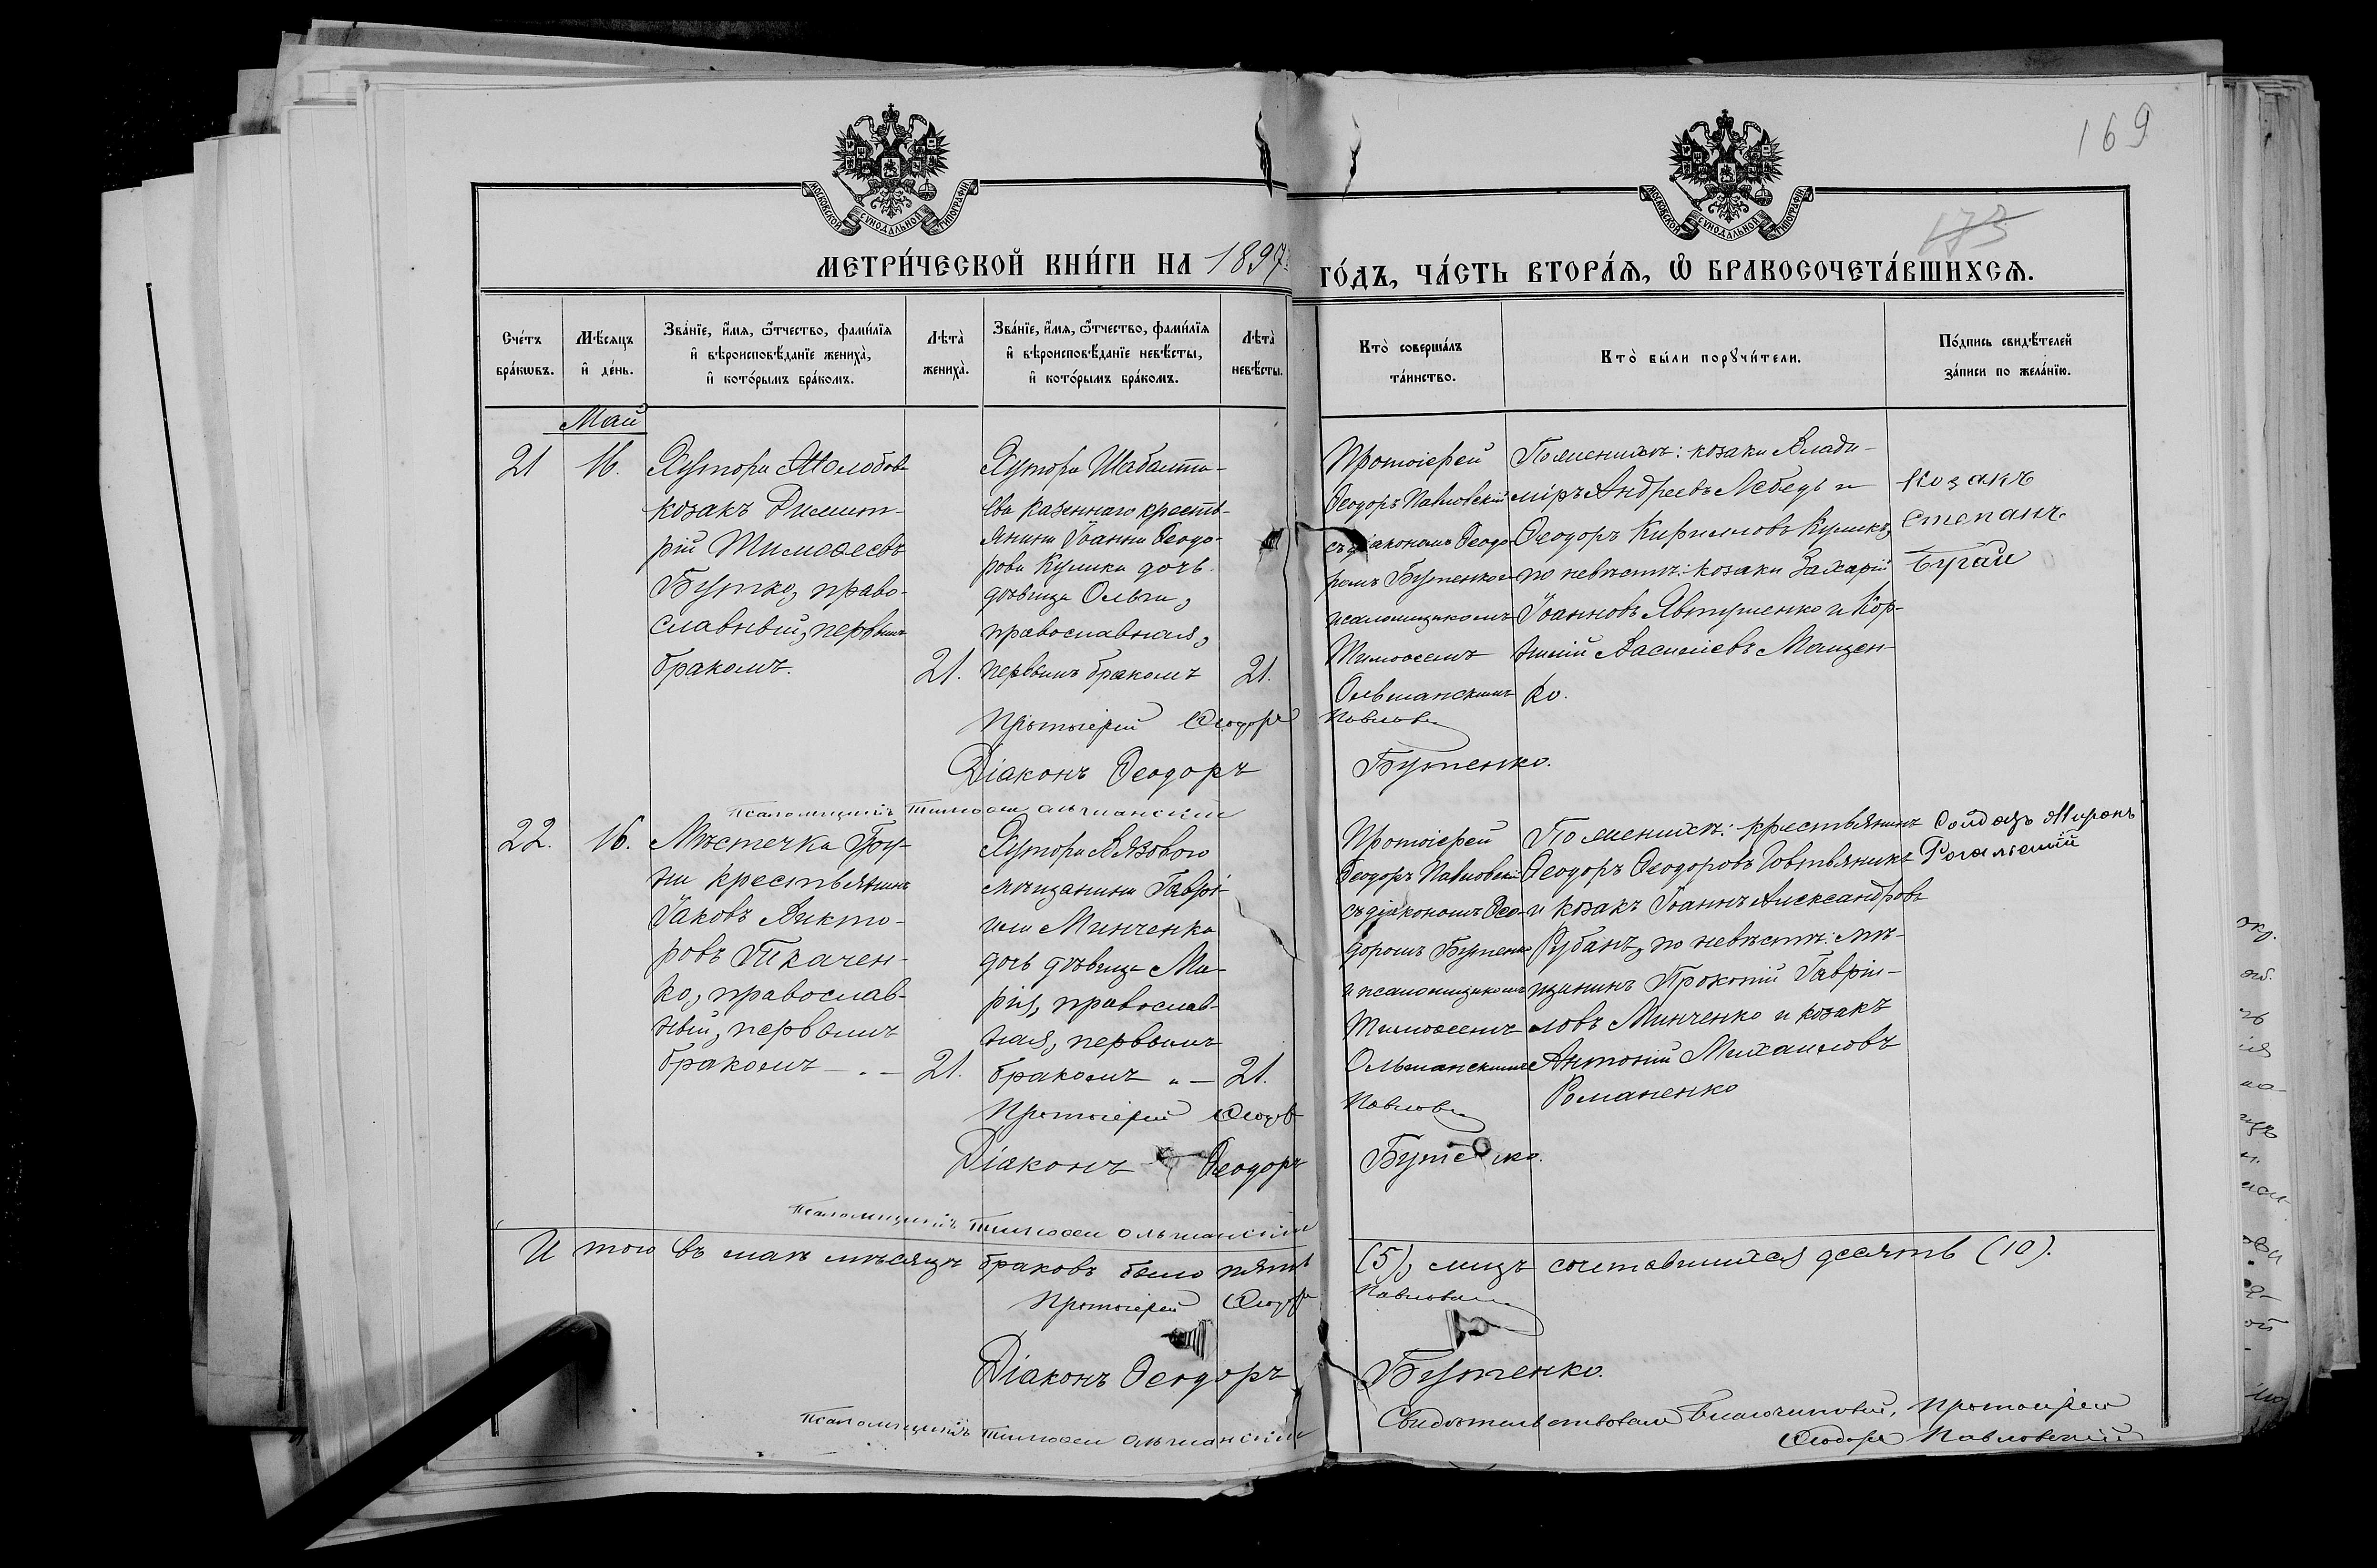 169
173
МОСКОВСКОЙ СѴНОДАЛЬНОЙ ТИПОГРАФІИ
МОСКОВСКОЙ СѴНОДАЛЬНОЙ ТИПОГРАФІИ
МЕТРИ́ЧЕСКОЙ КНИ́ГИ НА 1897
ГО́ДЪ, ЧА́СТЬ ВТОРА́Ѧ, Ѽ БРАКОСОЧЕТА́ВШИХСѦ.
Сче́тъ
бра́кѡвъ.
Мѣ́сяцъ
и҆ де́нь.
Зва́нїе, и҆́мѧ, ѻ҆́тчество, фами́лїѧ
и҆ вѣроисповѣ́данїе жениха̀,
и҆ кото́рымъ бра́комъ.
Лѣта̀
жениха̀.
Зва́нїе, и҆́мѧ, ѻ҆́тчество, фами́лїѧ
и҆ вѣроисповѣ́данїе невѣ́сты,
и҆ кото́рымъ бра́комъ.
Лѣта̀
невѣ́сты.
Кто̀ соверша́лъ
та́инство.
Кто̀ бы́ли порꙋчи́тели.
По́дпись свидѣ́телей
за́писи по жела́нїю.
Май
21
16.
Хутора Молодов
козакъ Димит-
рій Тимоѳеевъ
Бутко, право-
славный, первымъ
бракомъ.
21.
Хутора Шабалта-
ева казеннаго кресть-
янина Іоанна Ѳеодо-
рова Кулика дочь
дѣвица Ольга,
православная,
первымъ бракомъ
21.
Протоіерей
Ѳеодоръ Павловскій
съ діакономъ Ѳеодо-
ромъ Бутенко и
псаломщикомъ
Тимоѳеемъ
Ольшанскимъ
По женихѣ: козаки Влади-
міръ Андреевъ Лебедь и
Ѳеодоръ Кирилловъ Куликъ,
по невѣстѣ: козаки Захарій
Іоанновъ Явтушенко и Кор-
нилій Василіевъ Мащен-
ко.
Козакъ
Степанъ
Бугай
Протоіерей Ѳеодоръ Павлов
Діаконъ Ѳеодоръ Бутенко.
Псаломщикъ Тимоѳей Ольшанскій
22.
16.
Мѣстечка Гру-
ни крестьянинъ
Іаковъ Викто-
ровъ Ткачен-
ко, православ-
ный, первымъ
бракомъ
21.
Хутора Вязового
мѣщанина Гаврі-
ила Минченка
дочь дѣвица Ма-
рія, православ-
ная, первымъ
бракомъ
21.
Протоіерей
Ѳеодоръ Павловскій
съ діакономъ Ѳео-
доромъ Бутенко
и псаломщикомъ
Тимоѳеемъ
Ольшанскимъ
По женихѣ: крестьянинъ
Ѳеодоръ Ѳеодоровъ Говтвяникъ
и козакъ Іоаннъ Александровъ
Рубанъ, по невѣстѣ: мѣ-
щанинъ Прокопій Гаврі-
ловъ Минченко и козакъ
Антоній Михаиловъ
Романенко
Солдатъ Миронъ
Рогальскій
Протоіерей Ѳеодор Павлов
Діаконъ Ѳеодоръ Бутенко.
Псаломщикъ Тимоѳей Ольшанскій
И того въ маѣ мѣсяцѣ браковъ было пять (5), лицъ сочетавшихся десять (10).
Протоіерей Ѳеодоръ Павловскій
Діаконъ Ѳеодоръ Бутенко.
Псаломщикъ Тимоѳей Ольшанскій
Свидѣтельствовалъ Благочинный, Протоіерей
Ѳеодоръ Павловскій